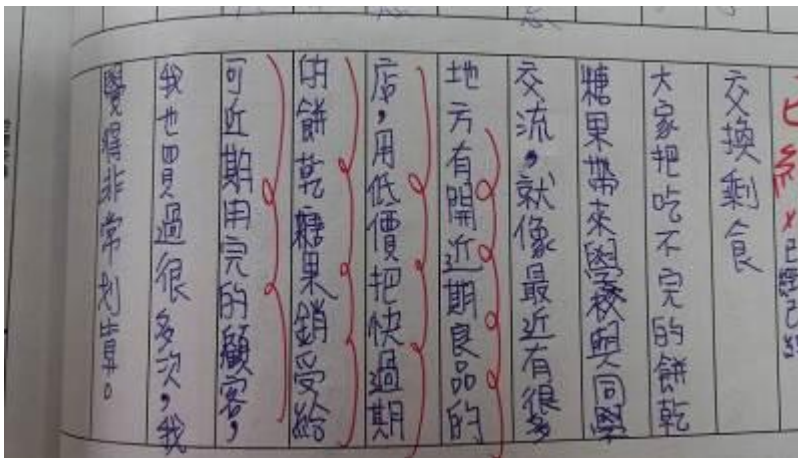 已經已經
交換剩食
大家把吃不完的餅乾
糖果帶來學校與同學
交流，就像最近有很多
地方有開近期良品的
店，用低價把快過期
的餅乾糖果銷受給
可近期用完的顧客，
我也買過很多次，我
覺得非常划算。